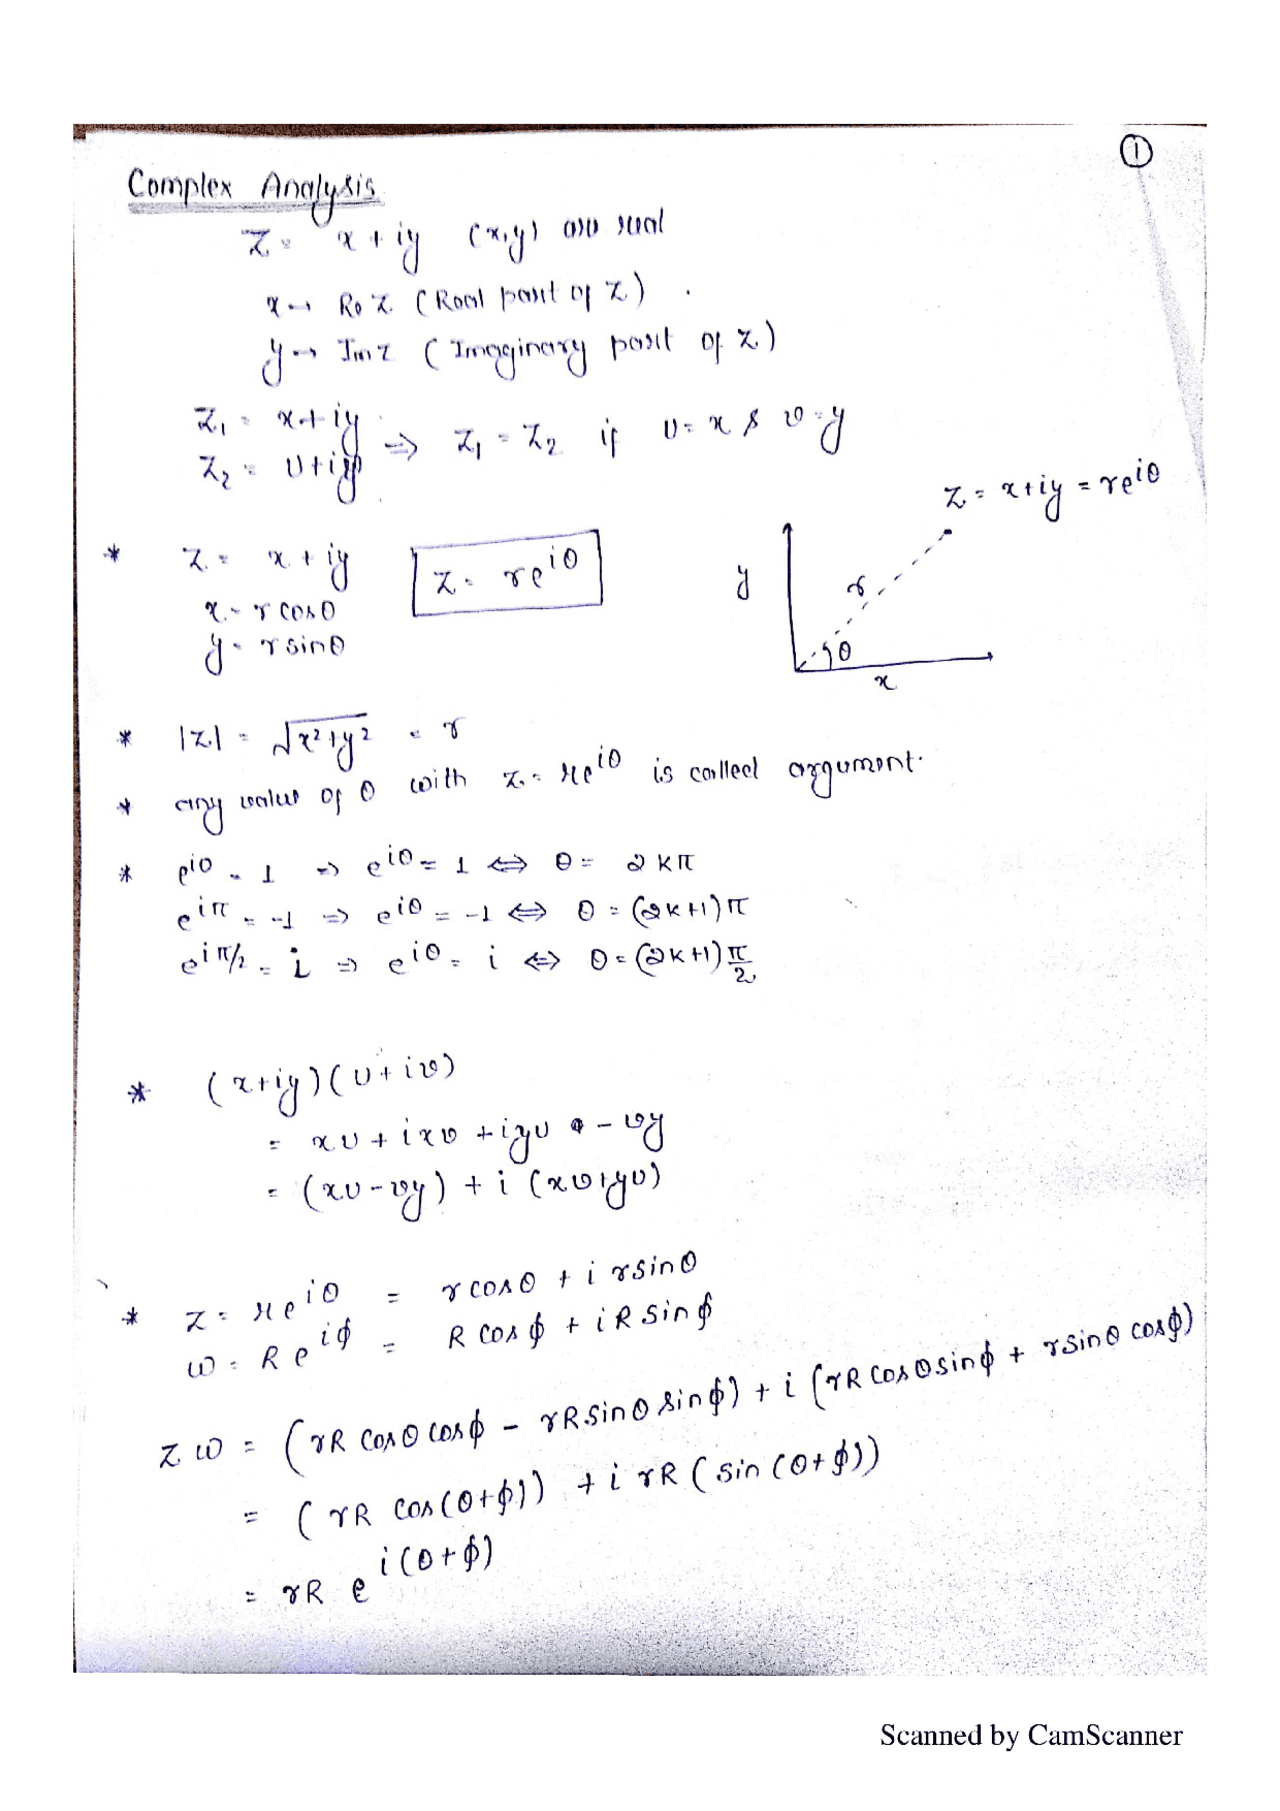 ①
Complex Analysis
z = x + iy (x,y) are real
x → Re z (Real part of z)
y → Im z (Imaginary part of z)
z₁ = x + iy
z₂ = u + iv
⇒ z₁ = z₂ if u = x & v = y
z = x + iy = re^{iθ}
* z = x + iy
z = re^{iθ}
x = r cosθ
y = r sinθ
y
r
θ
x
* |z| = √(x²+y²) = r
* any value of θ with z = re^{iθ} is called argument.
* e^{i0} = 1 ⇒ e^{iθ} = 1 ⇔ θ = 2kπ
e^{iπ} = -1 ⇒ e^{iθ} = -1 ⇔ θ = (2k+1)π
e^{iπ/2} = i ⇒ e^{iθ} = i ⇔ θ = (2k+1)π/2
* (x+iy)(u+iv)
= xu + ixv + iyu - vy
= (xu - vy) + i (xv+yu)
* z = re^{iθ} = r cosθ + i r sinθ
w = Re^{iϕ} = R cosϕ + i R sinϕ
zw = (rR cosθ cosϕ - rR sinθ sinϕ) + i (rR cosθ sinϕ + r sinθ cosϕ)
= (rR cos(θ+ϕ)) + i rR (sin(θ+ϕ))
= rR e^{i(θ+ϕ)}
Scanned by CamScanner